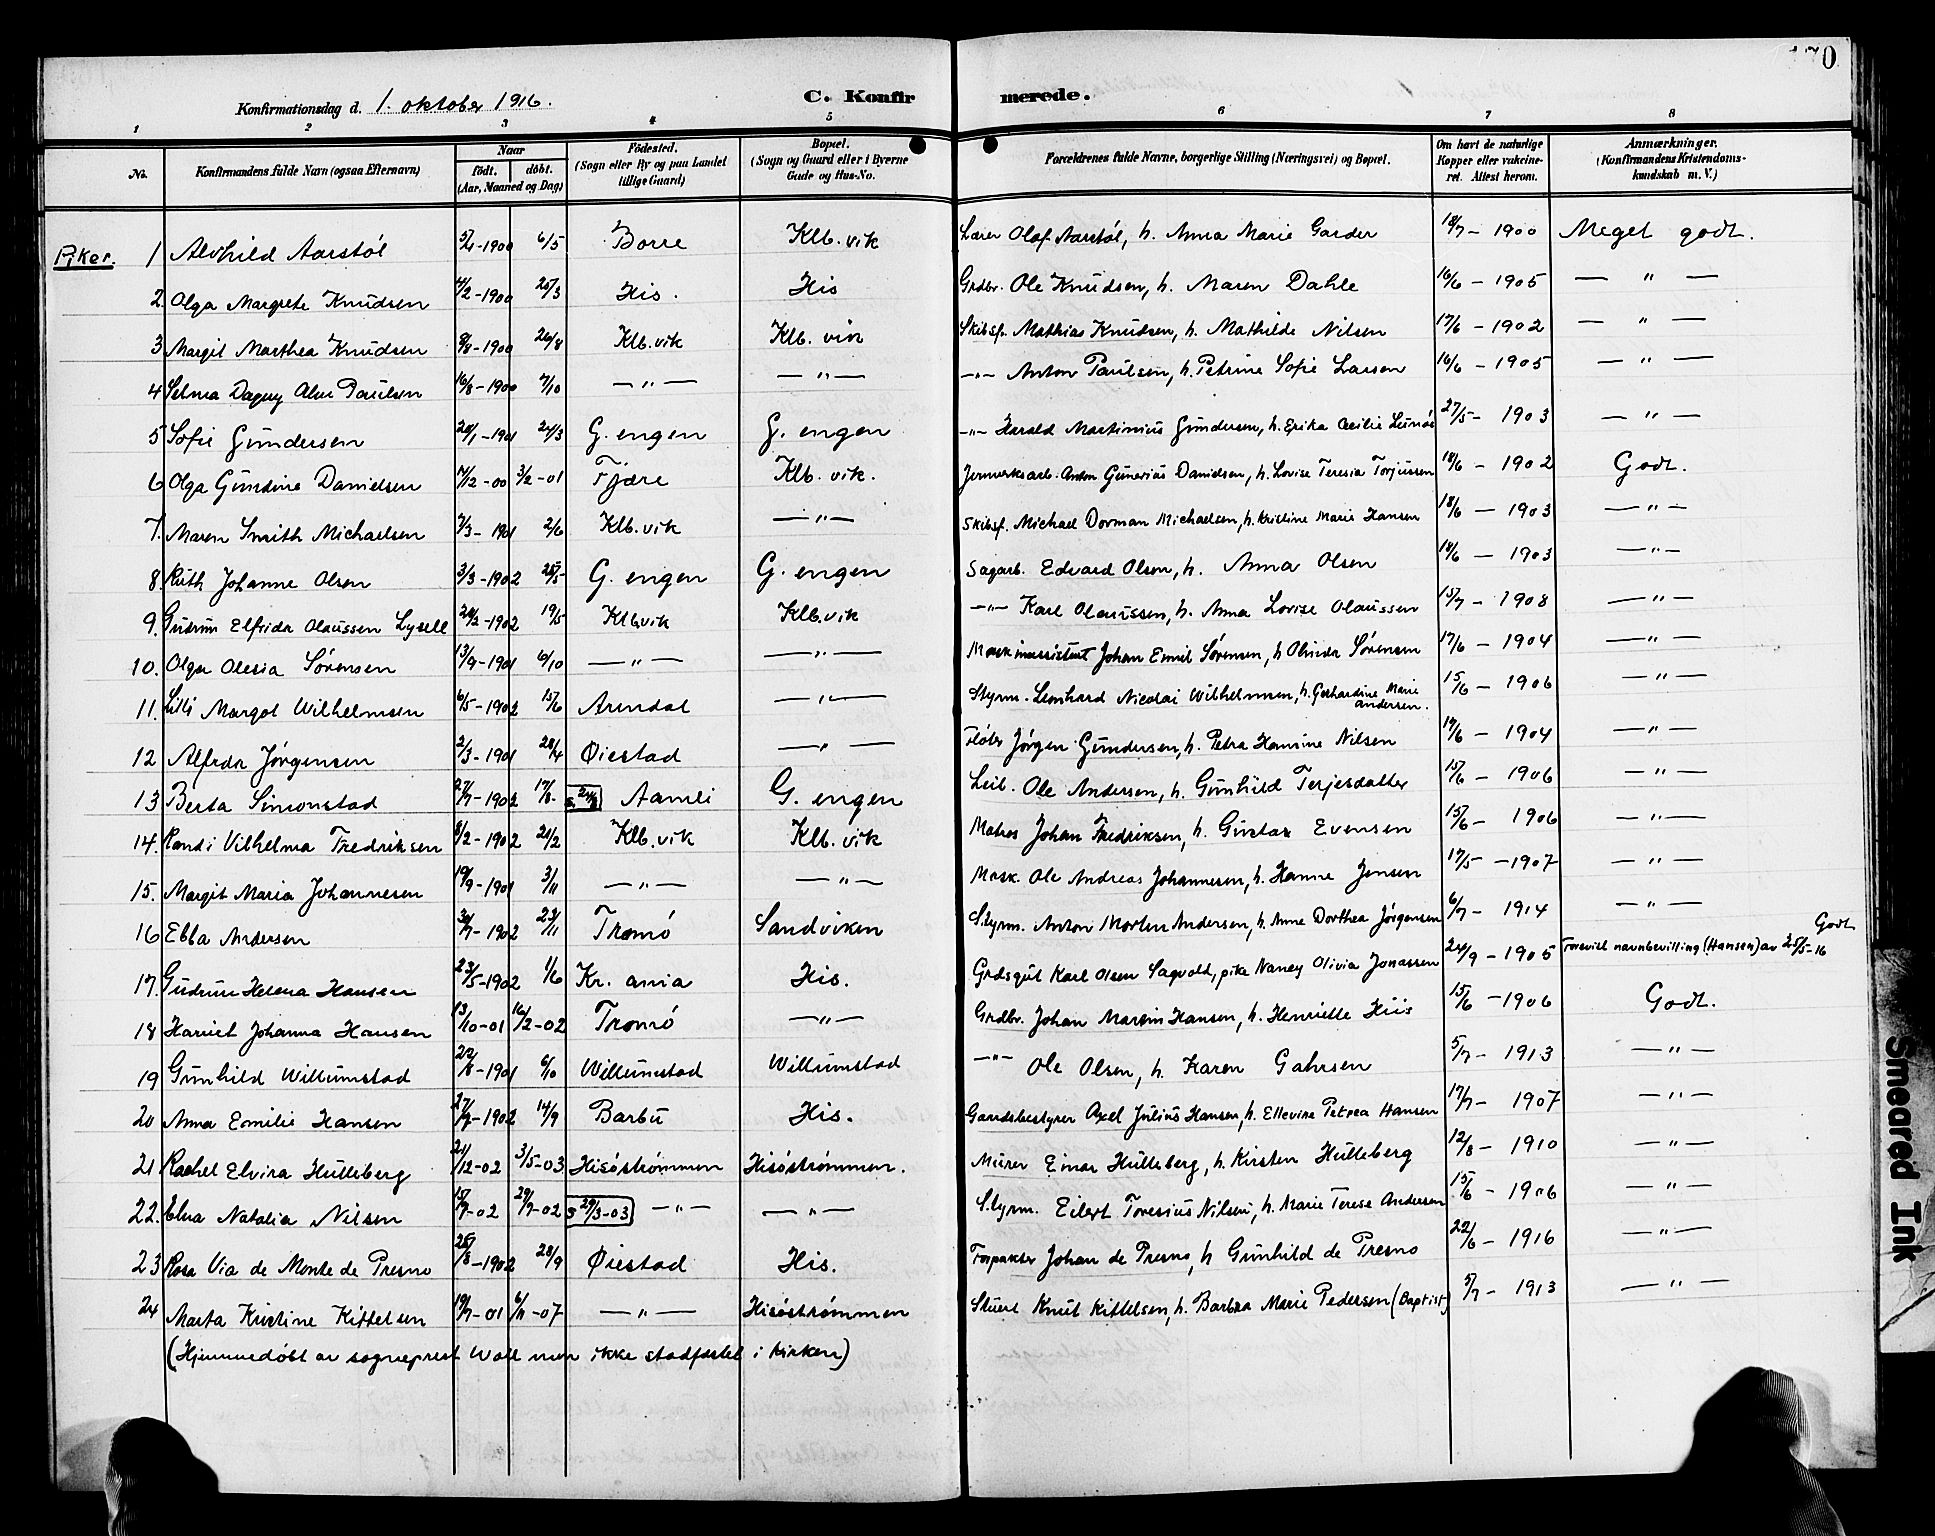 70
Konfirmationsdag d. 1. oktober 1916.
C. Konfirmerede.
1 2 3 4 5 6 7 8
No. Konfirmandens fulde Navn (ogsaa Efternavn) Naar født. døbt. (Aar, Maaned og Dag) Fødested. (Sogn eller By og paa Landet tillige Gaard) Bopæl. (Sogn og Gaard eller i Byerne Gade og Hus-No. Forældrenes fulde Navne, borgerlige Stilling (Næringsvei) og Bopæl. Om havt de naturlige Kopper eller vaccineret. Attest herom. Anmærkninger. (Konfirmandens Kristendomskundskab m. V.)
Piker.
1 Alvhild Aarstøl 5/4-1900 6/5 Borre Klb. vik Lærer Olaf Aarstøl, h. Anna Marie Garder 18/7 - 1900 Meget godt.
2. Olga Margrete Knudsen 4/2-1900 25/3 His. His Grdbr. Ole Knudsen, h. Maren Dahle 16/6 - 1905 — " —
3 Margit Marthea Knudsen 9/8-1900 26/8 Klb. vik Klb. vik Skibsf. Mathias Knudsen, h. Mathilde Nilsen 17/6 - 1902 — " —
4 Selma Dagny Alvi Paulsen 16/8-1900 7/10 — " — — " — — " — Anton Paulsen, h. Petrine Sofie Larsen 16/6 - 1905 — " —
5 Sofie Gundersen 20/1-1901 24/3 G. engen G. engen — " — Harald Martinius Gundersen, h. Erika Cecilie 27/5 - 1903 — " —
6 Olga Gundine Danielsen 7/12-00 3/2-01 Fjære Klb. vik. Jernverksarb. Anton Gunerius Danielsen, h. Lovise Teresia Torjussen 18/6 - 1902 Godt.
7. Maren Smith Michaelsen 7/3-1901 2/6 Klb. vik — " — Skibsf. Michael Dorman Michaelsen, h. Kristine Marie Hansen 18/6 - 1903 — " —
8. Ruth Johanne Olsen 3/3-1902 25/5 G. engen G. engen Sagarb. Edvard Olsen, h. Anna Olsen 18/6 - 1903 — " —
9. Gudrun Elfrida Olaussen Lysell 24/2-1902 19/5 Klb.vik Klb. vik — " — Karl Olaussen, h. Anna Lovise Olaussen 15/7 - 1908 — " —
10. Olga Olesia Sørensen 13/9-1901 6/10 — " — — " — Maskinassistent Johan Emil Sørensen, h Olinda Sørensen 17/6 - 1904 — " —
11. Lilli Margot Wilhelmsen 6/5-1902 15/6 Arendal — " — Styrm. Leonhard Nicolai Wilhelmsen, h. Gerhardine Marie Andersen. 15/6 - 1906 — " —
12 Alfrida Jørgensen 2/3-1901 28/4 Øiestad — " — Fløter Jørgen Gundersen, h. Petra Hansine Nilsen 17/6 - 1904 — " —
13 Berta Simonstad 27/7-1902 17/8. Aamli G. engen Leil. Ole Andersen, h. Gunhild Terjesdatter 15/6 - 1906 — " —
14. Randi Vilhelma Fredriksen 8/2-1902 21/2 Klb. vik Klb. vik Matros Johan Fredriksen, h. Gustava Evensen 15/6 - 1906 — " —
15. Margit Maria Johannesen 19/9-1901 3/11 — " — — " — Mask. Ole Andreas Johannesen, h. Hanne Jensen 17/5 - 1907 — " —
16 Ebba Andersen 30/7-1902 23/11 Tromø Sandviken Styrm. Anton Morten Andersen, h. Anne Dorthea Jørgensen 6/7 - 1914 — " —
17. Gudrun Helena Hansen 23/5-1902 1/6 Kr. ania His. Grdsgut Karl Olsen Sagvold, pike Nancy Olivia Jonassen 24/9 - 1905 Forevist navnbevilling (Hansen) av 25/5-16 Godt
18 Harriet Johanna Hansen 13/10-01 16/2-02 Tromø — " — Grdbr. Johan Martin Hansen, h. Henriette Hiis 15/6 - 1906 Godt.
19 Gunhild Willumstad 22/8-1901 6/10 Willumstad Willumstad — " — Ole Olsen, h. Karen Gahrsen 5/7 - 1913 — " —
20 Anna Emilie Hansen 27/7-1902 14/9 Barbu His. Gaardsbestyrer Axel Julius Hansen, h. Ellevine Petrea Hansen 17/7 - 1907 — " —
21 Rachel Elvira Hulleberg 21/12-02 3/5-03 Hisøstrømmen Hisøstrømmen. Murer Einar Hulleberg, h. Kirsten Hulleberg 12/8 - 1910 — " —
22. Elna Natalia Nilsen 15/7-02 29/7-02 S 29/3-03 — " — — " — Styrm. Eilert Toresius Nilsen, h. Marie Terese Andersen 15/6 - 1906 — " —
23 Rosa Via de Monte de Presno 25/8-1902 28/9 Øiestad His. Forpakter Johan de Presno, h Gunhild de Presno 22/6 - 1916 — " —
24 Marta Kristine Kittelsen 19/7-01 6/11-07 — " — Hisøstrømmen Stuert Knut Kittelsen, h. Barbra Marie Pedersen (Baptist) 5/7 - 1913 — " —
(Hjemmedøbt av sogneprest Woll men ikke stadfæstet i kirken)
Smeared Ink